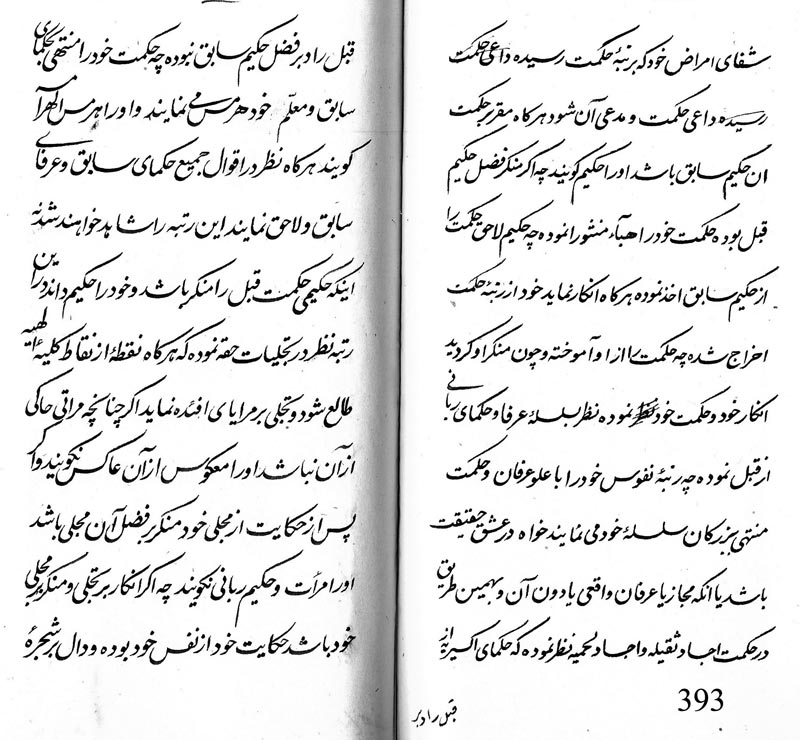 شفای امراض خود که برتبهٔ حکمت رسیده داعی حکمت
رسیده داعی حکمت و مدعی آن شود هرکاه مقر بر حکمت
ان حکیم سابق باشد اورا حکیم کویند چه اکر منکر فضل حکیم
قبل بوده حکمت خود را هباء منثورا نموده چه حکیم لاحق حکمت را
از حکیم سابق اخذ نموده هرکاه انکار نماید خود از رتبهٔ حکمت
اخراج شده چه حکمت را از او آموخته و چون منکر او کردید
انکار خود و حکمت خود نموده نظر بسلسلهٔ عرفا و حکمای ربانی
از قبل نموده چه رتبهٔ نفوس خود را با علو عرفان و حکمت
منتهی بزرکان سلسلهٔ خود می نمایند خواه در عشق حقیقت
باشد یا انکه مجاز یا عرفان واقعی یا دون آن و بهمین طریق
در حکمت اجساد ثقیله و اجساد لحمیه نظر نموده که حکمای اکسیریه از
قبل راد بر
393
قبل راد بر فضل حکیم سابق نبوده چه حکمت خود را منتهی بحکمای
سابق و معلم خود هرمس می نمایند و اورا هرمس الهرامسه
کویند هرکاه نظر در اقوال جمیع حکمای سابق و عرفای
سابق و لاحق نمایند این رتبه را شاهد خواهند شد نه
اینکه حکیمی حکمت قبل را منکر باشد و خود را حکیم داند در این
رتبه نظر در تجلیات حقه نموده که هرکاه نقطهٔ از نقاط کلیهٔ الهیه
طالع شود و تجلی بر مرایای افئده نماید اکر چنانچه مراتی حاکی
از آن نباشد اورا معکوس از آن عاکس نکویند و اکر
پس از حکایت از مجلی خود منکر بر فضل آن مجلی باشد
اورا مرآت و حکیم ربانی نکویند چه اکر انکار بر تجلی و منکر مجلی
خود باشد حکایت خود از نفس خود بوده و دال بر شجرهٔ